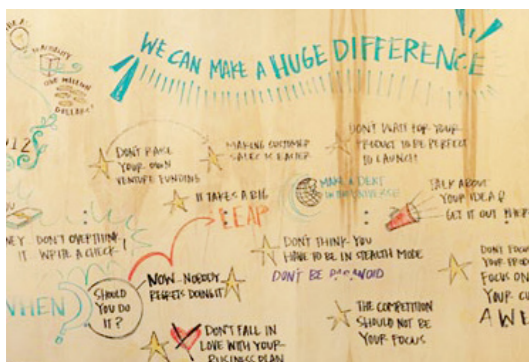 WE CAN MAKE A HUGE DIFFERENCE
ONE MILLION
DOLLARS!
DON'T RAISE
YOUR OWN
VENTURE FUNDING
MAKING CUSTOMER
SALES IS EASIER
DON'T WAIT FOR YOUR
PRODUCT TO BE PERFECT
TO LAUNCH!
IT TAKES A BIG
LEAP
MAKE A DENT
IN THE UNIVERSE
TALK ABOUT
YOUR IDEA &
GET IT OUT
DON'T OVERTHINK
IT WRITE A CHECK!
DON'T THINK YOU
HAVE TO BE IN STEALTH MODE
DON'T BE PARANOID
WHEN?
SHOULD
YOU DO
IT?
NOW - NOBODY
REGRETS DOING IT
DON'T FALL IN
LOVE WITH YOUR
BUSINESS PLAN
THE COMPETITION
SHOULD NOT BE
YOUR FOCUS
DON'T
YOUR
FOCUS ON
YOUR